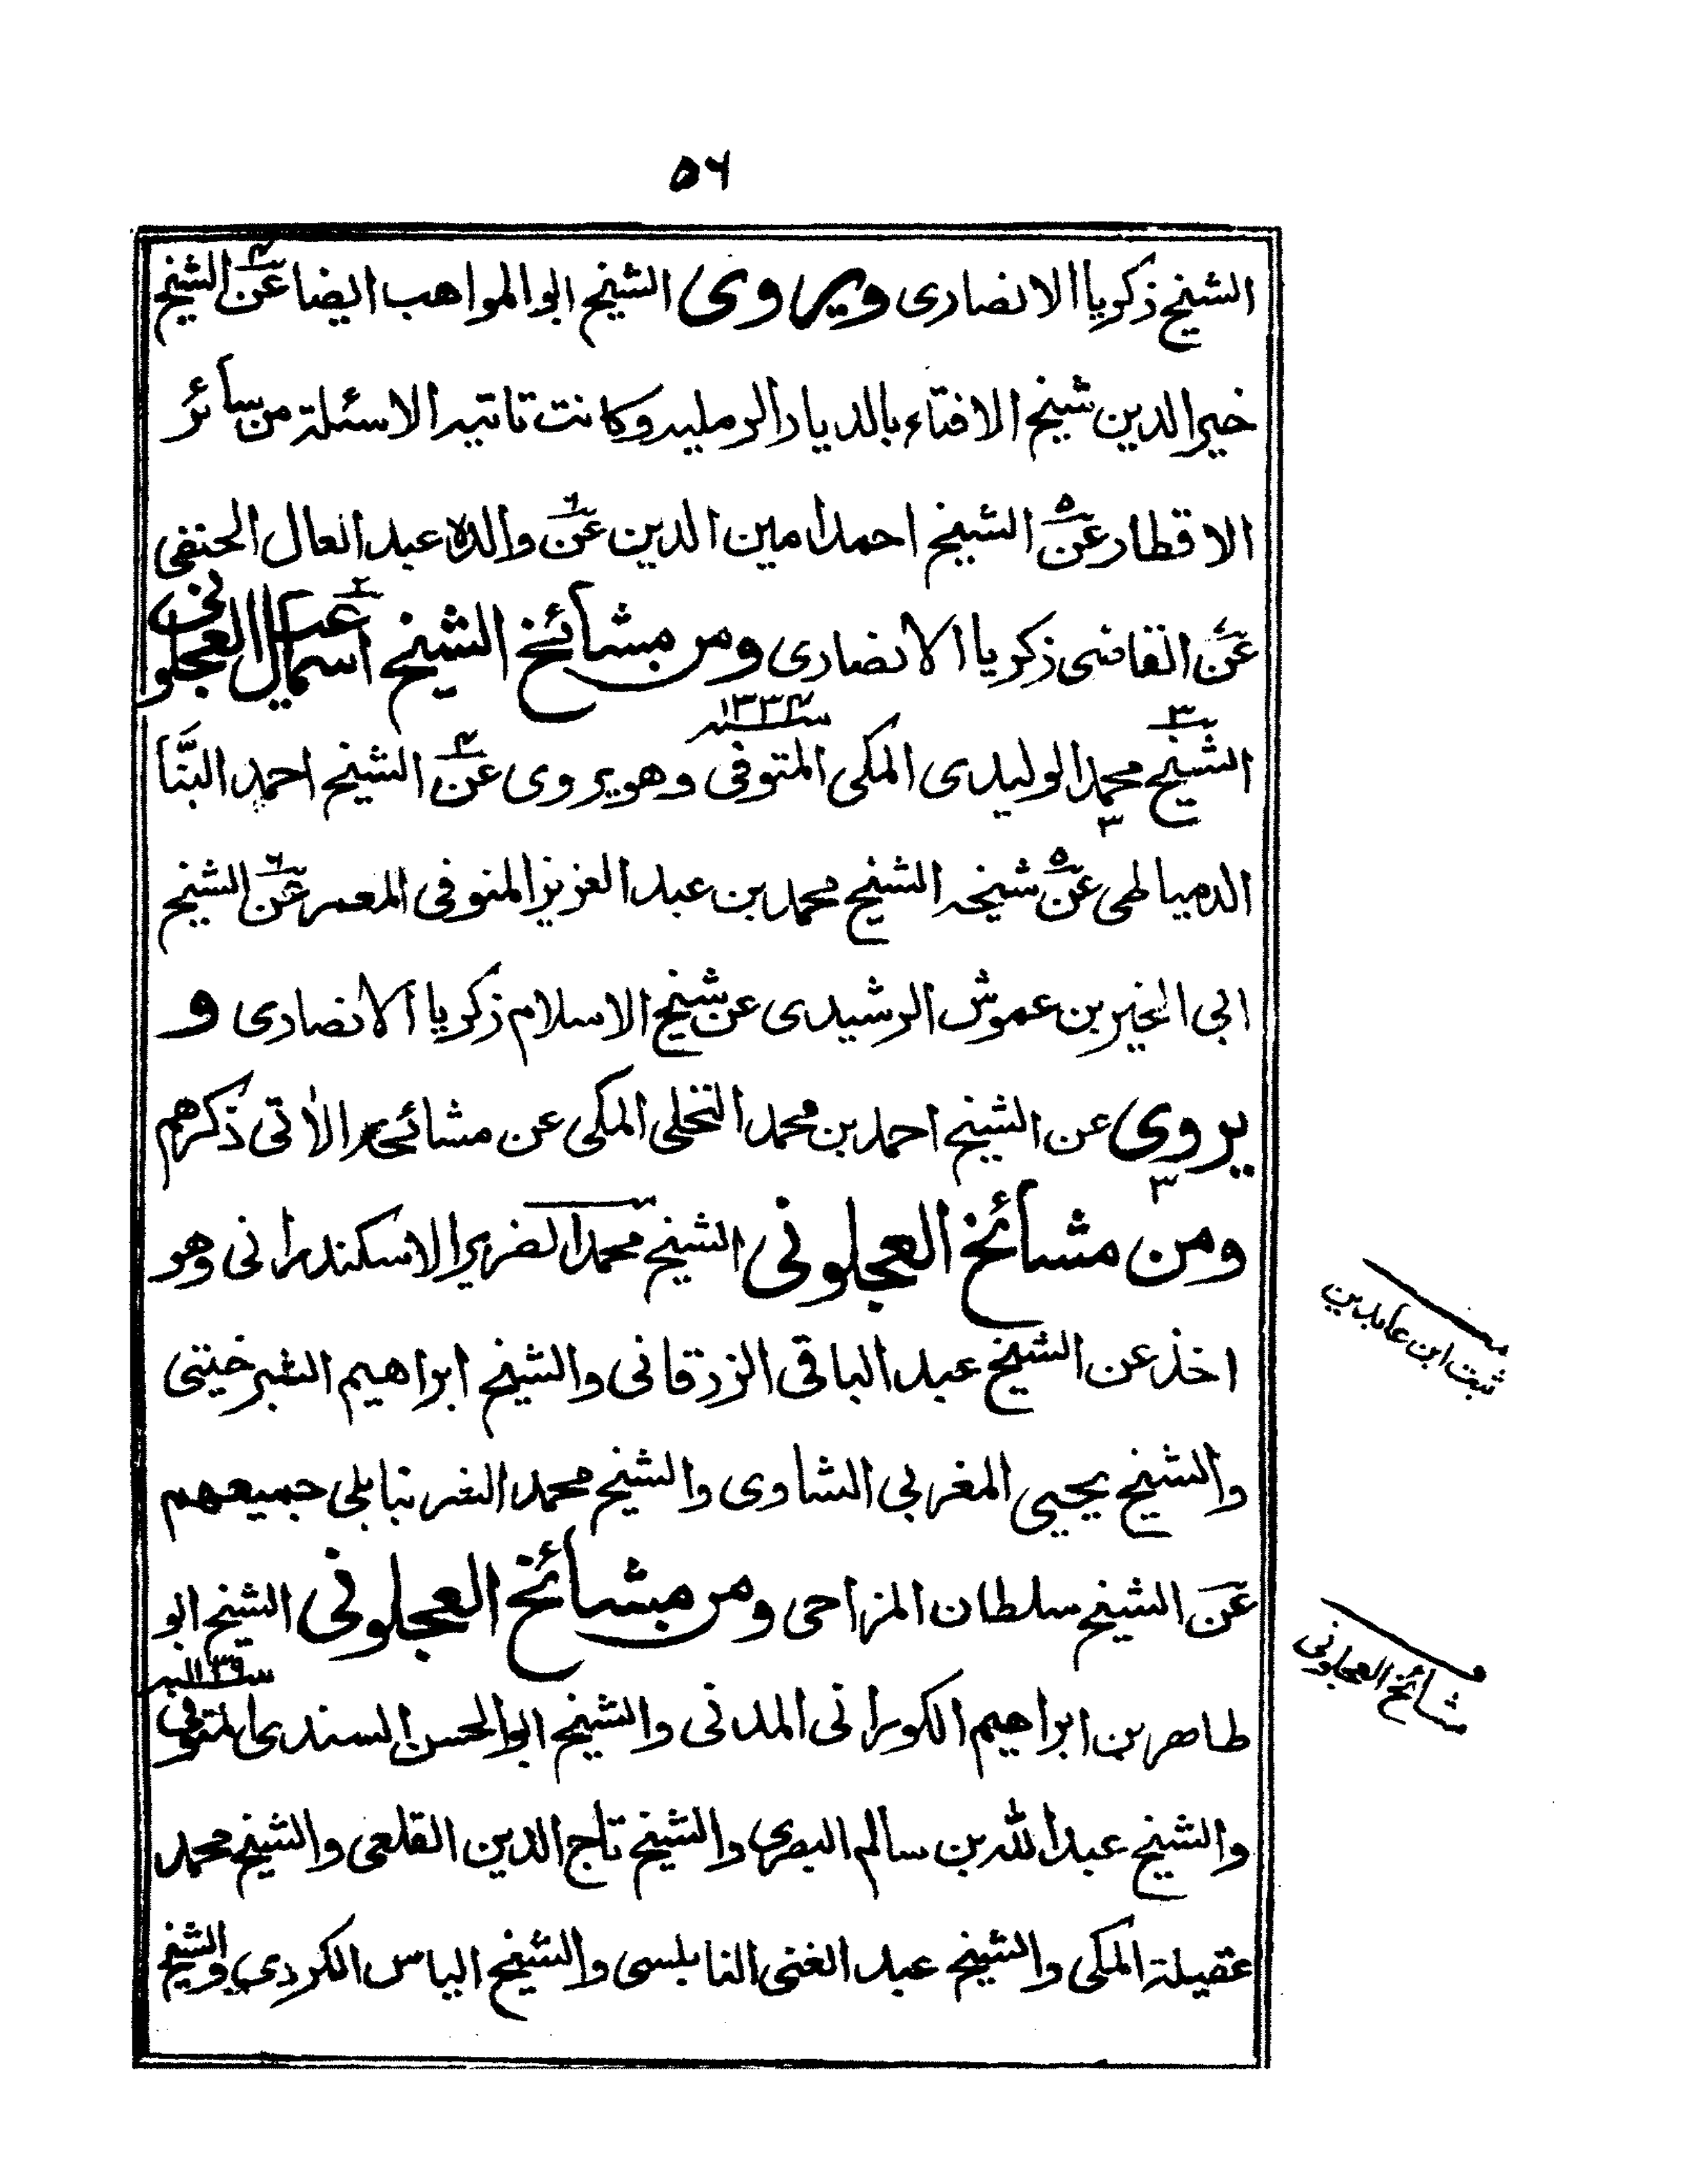 ۵۶
الشیخ ذکریا الانصاری ویروی الشیخ ابوالمواهب ایضا عن۴ الشیخ
خیرالدین شیخ الافتاء بالدیار الرملیه وکانت تاتیه الاسئلة من سائر
الاقطار عن۵ الشیخ احمد امین الدین عن۶ والده عبد العال الحنفی
عن القاضی ذکریا الانصاری ومن مشائخ الشیخ اسمٰعیل العجلونی
الشیخ۳ محمد الولیدی المکی المتوفی سنه ۱۳۳۴ وهو یروی عن۴ الشیخ احمد البنَّا
الدمیاطی عن۵ شیخه الشیخ محمد بن عبد العزیز المنوفی المعمر عن۶ الشیخ
ابی الخیر بن عموش الرشیدی عن شیخ الاسلام ذکریا الانصاری و
یروی عن الشیخ احمد بن محمد النخلی المکی عن مشائخه الاٰتی ذکرهم
ومن مشائخ العجلونی الشیخ محمد الضریر الاسکندرانی وهو
اخذ عن الشیخ عبد الباقی الزرقانی والشیخ ابراهیم الشبرخیتی
والشیخ یحیی المغربی الشاوی والشیخ محمد الشرنبابلی جمیعهم
عن الشیخ سلطان المزاحی ومن مشائخ العجلونی الشیخ ابو
طاهر بن ابراهیم الکورانی المدنی والشیخ ابوالحسن السندی المتوفی
والشیخ عبد الله بن سالم البصری والشیخ تاج الدین القلعی والشیخ محمد
عقیلة المکی والشیخ عبد الغنی النابلسی والشیخ الیاس الکردی والشیخ
ثبت ابن عابدین
مشائخ العجلونی